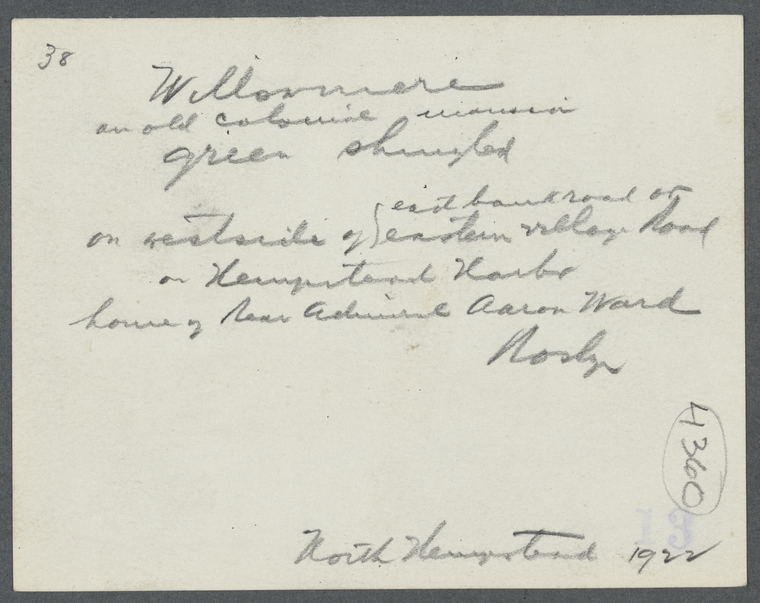 38
Willowmere
an old colonial mansion
green shingled
east bank road or
on west side of { eastern village Road
on Hempstead Harbor
home of Rear Admiral Aaron Ward
Roslyn
4360
13
North Hempstead 1922